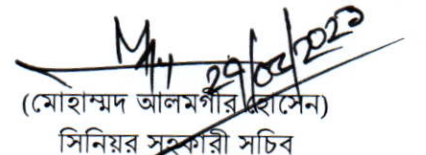 29/02/2023
(মোহাম্মদ আলমগীর হোসেন)
সিনিয়র সহকারী সচিব